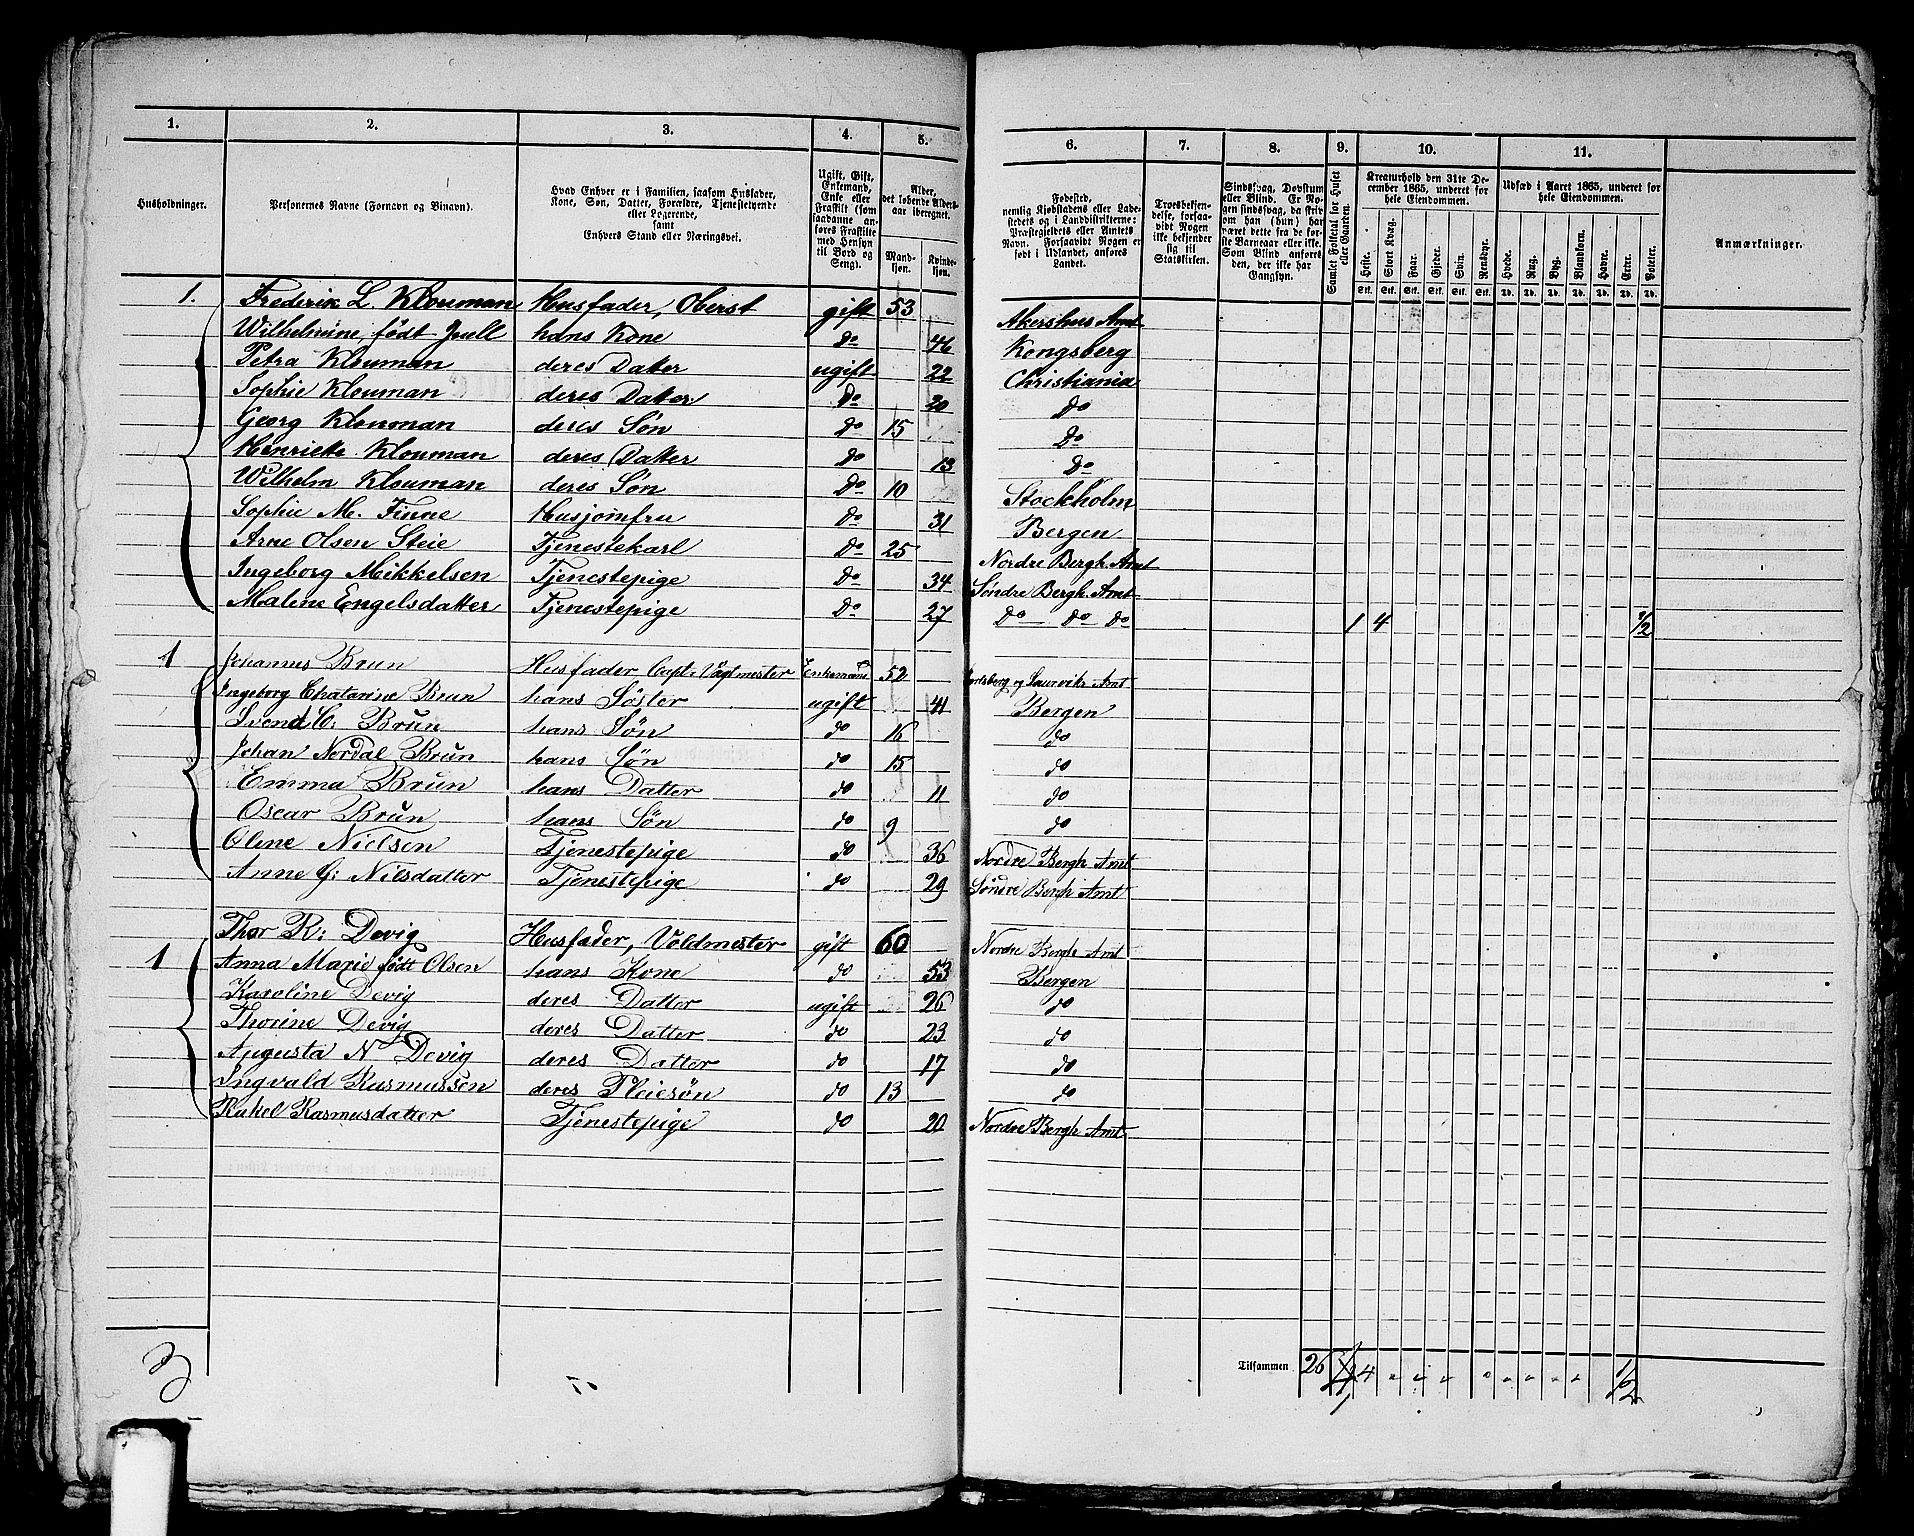 1. 2. 3. 4. 5. 6. 7. 8. 9. 10. 11.
Husholdninger.
Personernes Navne (Fornavn og Binavn).
Hvad Enhver er i Familien, saasom Husfader,
Kone, Søn, Datter, Forældre, Tjenestetyende
eller Logerende,
samt
Enhvers Stand eller Næringsvei.
Ugift, Gift,
Enkemand,
Enke eller
Fraskilt (som
saadanne an-
føres Fraskilte
med Hensyn
til Bord og
Seng).
Alder,
det løbende Alders-
aar iberegnet.
Mand-
kjøn.
Kvinde-
kjøn.
Fødested,
nemlig Kjøbstadens eller Lade-
stedets og i Landdistrikterne:
Præstegjeldets eller Amtets
Navn. Forsaavidt Nogen er
født i Udlandet, anføres
Landet.
Troesbekjen-
delse, forsaa-
vidt Nogen
ikke bekjender
sig til
Statskirken.
Sindssvag, Døvstum
eller Blind. Er No-
gen sindssvag, da skriv
om han (hun) har
været dette fra de før-
ste Barneaar eller ikke.
Som Blind anføres
den, der ikke har
Gangsyn.
Samlet Folketal for Huset
eller Gaarden.
Kreaturhold den 31te De-
cember 1865, underet for
hele Eiendommen.
Heste. Stort Kvæg. Faar. Gjeder. Svin. Rensdyr.
Stk. Stk. Stk. Stk. Stk. Stk.
Udsæd i Aaret 1865, underet for
hele Eiendommen.
Hvede. Rug. Byg. Blandkorn. Havre. Erter. Poteter.
Td. Td. Td. Td. Td. Td. Td.
Anmærkninger.
1. Frederik L. Klouman Husfader, Oberst gift 53 Akershus Amt
Wilhelmine, født Juell hans Kone Do 46 Kongsberg
Petra Klouman deres Datter ugift 22 Christiania
Sophie Klouman deres Datter Do 20 Do
Georg Klouman deres Søn Do 15 Do
Henriette Klouman deres Datter Do 13 Do
Wilhelm Klouman deres Søn Do 10 Stockholm
Sophie M. Finne Husjomfru Do 31 Bergen
Arne Olsen Steie Tjenestekarl Do 25 Nordre Bergh. Amt
Ingeborg Mikkelsen Tjenestepige Do 34 Søndre Bergh. Amt
Malene Engelsdatter Tjenestepige Do 27 Do Do Do 1 4 1/2
1 Johannes Brun Husfader Capt: Vagtmester Enkemand 52 Jarlsberg og Laurviks Amt
Ingeborg Chatarine Brun hans Søster ugift 41 Bergen
Svend C: Brun hans Søn do 16 do
Johan Nordal Brun hans Søn do 15 do
Emma Brun hans Datter do 11 do
Oscar Brun hans Søn do 9 do
Oline Nielsen Tjenestepige do 36 Nordre Bergh Amt
Anne G: Nilsdatter Tjenestepige do 29 Søndre Bergh Amt
1 Thor R: Devig Husfader, Voldmester gift 60 Nordre Bergh Amt
Anna Marie født Olsen hans Kone do 53 Bergen
Karoline Devig deres Datter ugift 26 do
Thorine Devig deres Datter do 23 do
Augusta N Devig deres Datter do 17 do
Ingvald Rasmussen deres Pleiesøn do 13 do
Rakel Rasmusdatter Tjenestepige do 20 Nordre Bergh Amt
3 Tilsammen 26 1 4 " " " " " " " 1/2